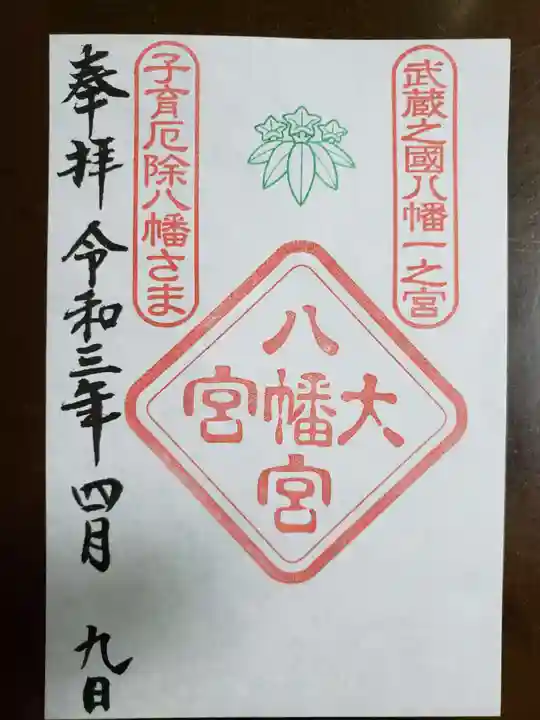 武蔵之國八幡一之宮
大
八幡宮
宮
子育厄除八幡さま
奉拝 令和三年 四月 九日